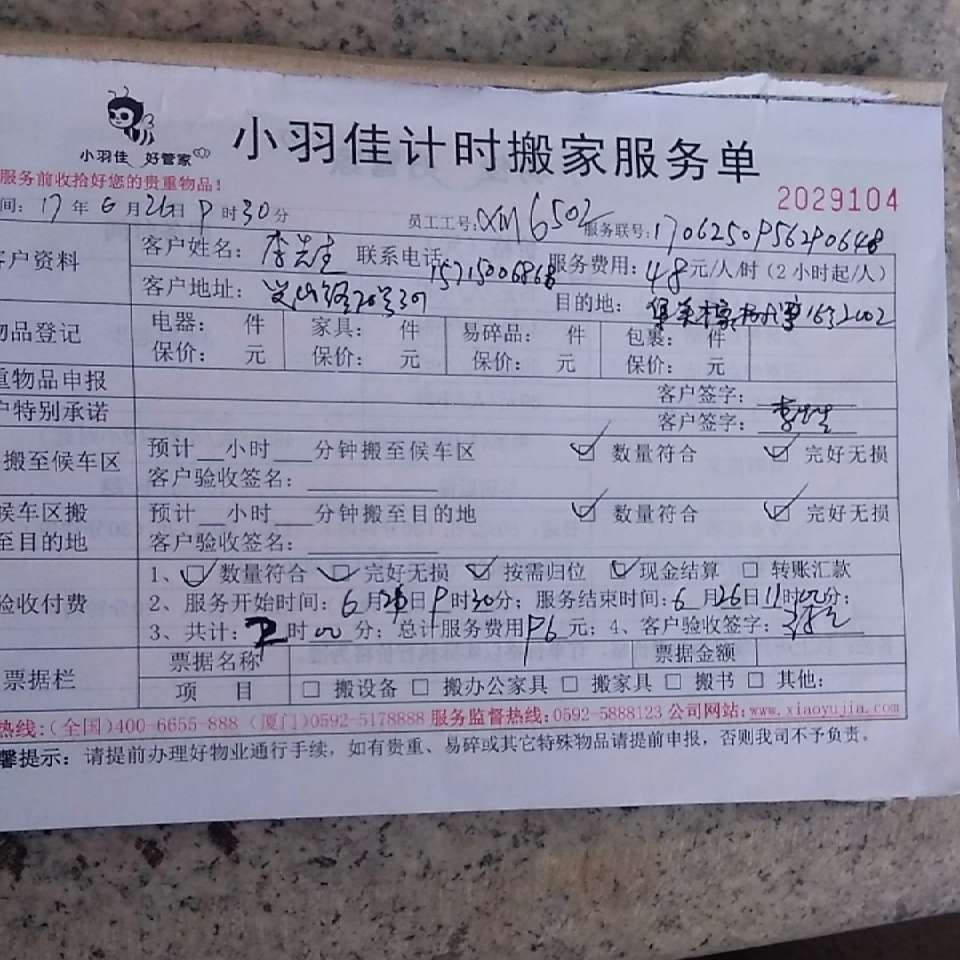 小羽佳 好管家
小羽佳计时搬家服务单
服务前收拾好您的贵重物品！
2029104
间：17年6月26日9时30分 员工工号：XM6502 服务联号：1706250956290648
户资料 客户姓名：李先生 联系电话：15715006868 服务费用：48元/人/时（2小时起/人）
客户地址： 目的地：集美 16号2002
物品登记 电器： 件 家具： 件 易碎品： 件 包裹： 件
保价： 元 保价： 元 保价： 元 保价： 元
重物品申报 客户签字：
户特别承诺 客户签字：李先生
搬至候车区 预计__小时___分钟搬至候车区 ☑ 数量符合 ☑ 完好无损
客户验收签名：
候车区搬至目的地 预计__小时___分钟搬至目的地 ☑ 数量符合 ☑ 完好无损
客户验收签名：
验收付费 1、☑数量符合 ☑完好无损 ☑按需归位 ☑现金结算 □ 转账汇款
2、服务开始时间：6月26日9时30分；服务结束时间：6月26日11时00分；
3、共计：2时00分；总计服务费用96元；4、客户验收签字：
票据栏 票据名称 票据金额
项 目 □ 搬设备 □ 搬办公家具 □ 搬家具 □ 搬书 □ 其他：
热线：（全国）400-6655-888（厦门）0592-5178888 服务监督热线：0592-5888123 公司网站：www.xiaoyujia.com
馨提示：请提前办理好物业通行手续，如有贵重、易碎或其它特殊物品请提前申报，否则我司不予负责。